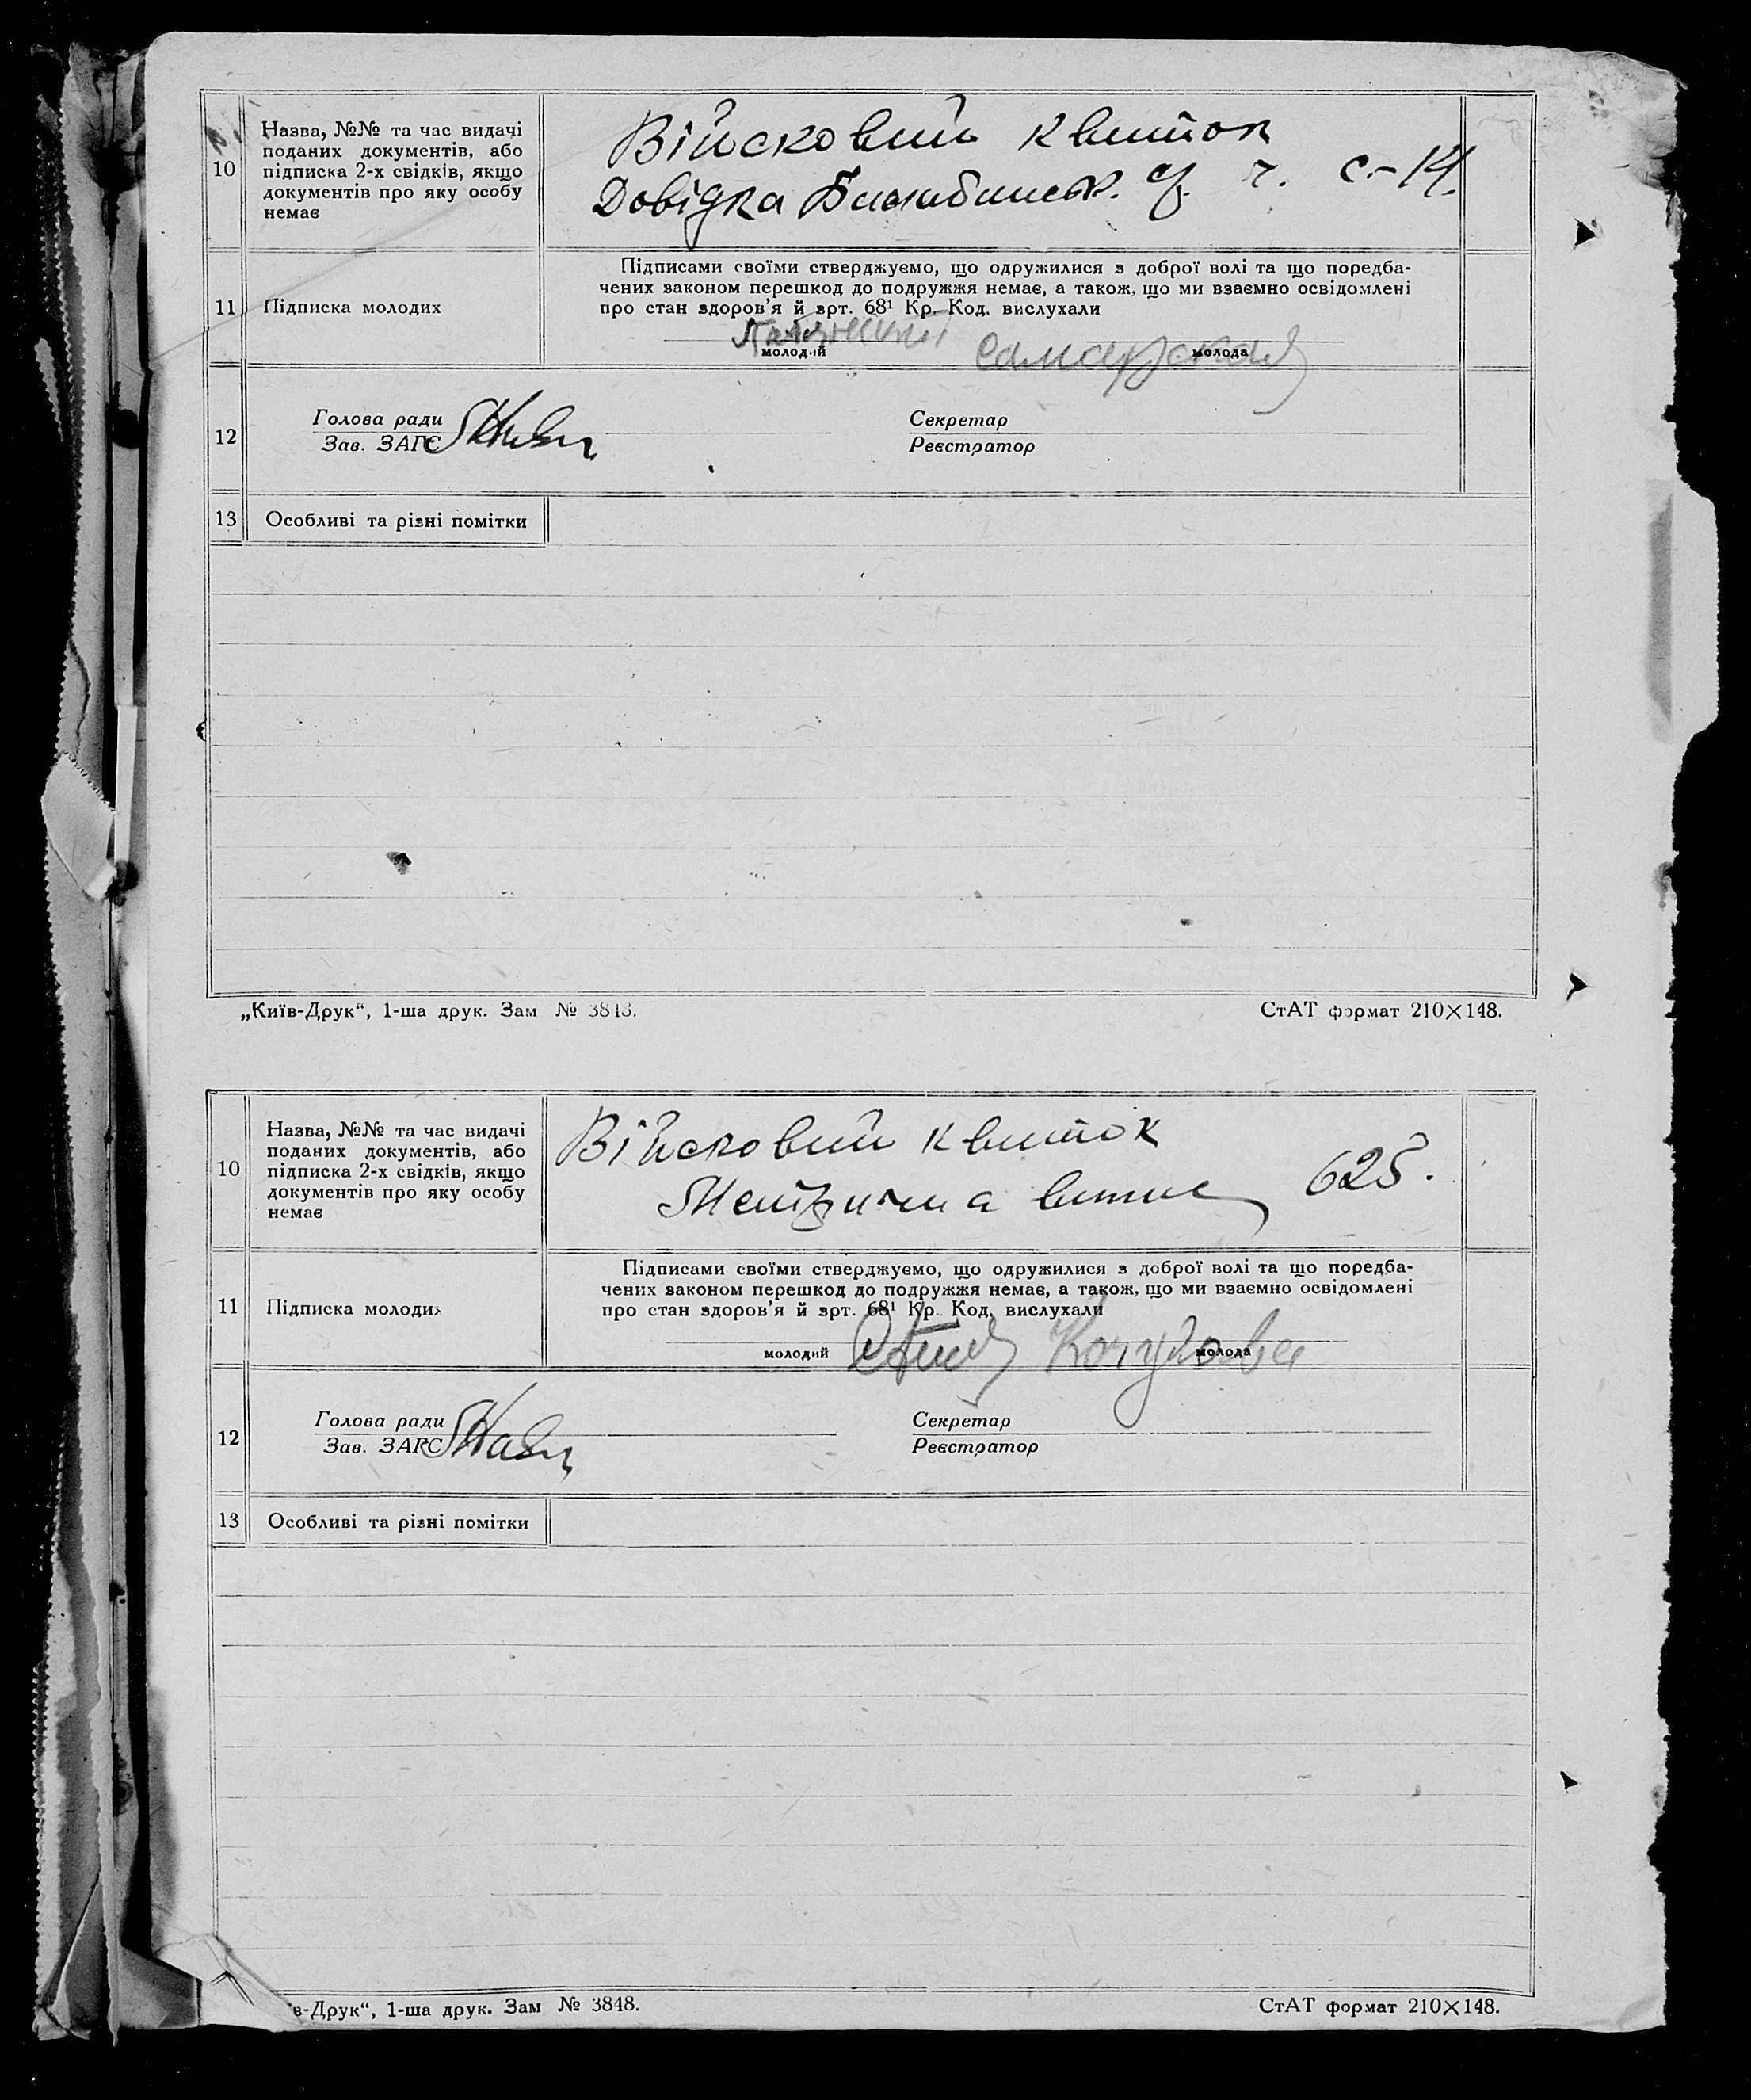 10
Назва, №№ та час видачі
поданих документів, або
підписка 2-х свідків, якщо
документів про яку особу
немає
Військовий квиток
Довідка с. ч. с-14.
11
Підписка молодих
Підписами своїми стверджуємо, що одружилися з доброї волі та що поредба-
чених законом перешкод до подружжя немає, а також, що ми взаємно освідомлені
про стан здоров'я й зрт. 68¹ Кр. Код. вислухали
молодий
молода
Самарская
12
Голова ради
Зав. ЗАГС
Секретар
Реєстратор
13
Особливі та різні помітки
„Київ-Друк“, 1-ша друк. Зам № 3848.
СтАТ формат 210×148.
10
Назва, №№ та час видачі
поданих документів, або
підписка 2-х свідків, якщо
документів про яку особу
немає
Війсковий квиток
Метрична витис 625.
11
Підписка молодих
Підписами своїми стверджуємо, що одружилися з доброї волі та що поредба-
чених законом перешкод до подружжя немає, а також, що ми взаємно освідомлені
про стан здоров'я й зрт. 68¹ Кр. Код. вислухали
молодий
молода
12
Голова ради
Зав. ЗАГС
Секретар
Реєстратор
13
Особливі та різні помітки
в-Друк“, 1-ша друк. Зам № 3848.
СтАТ формат 210×148.